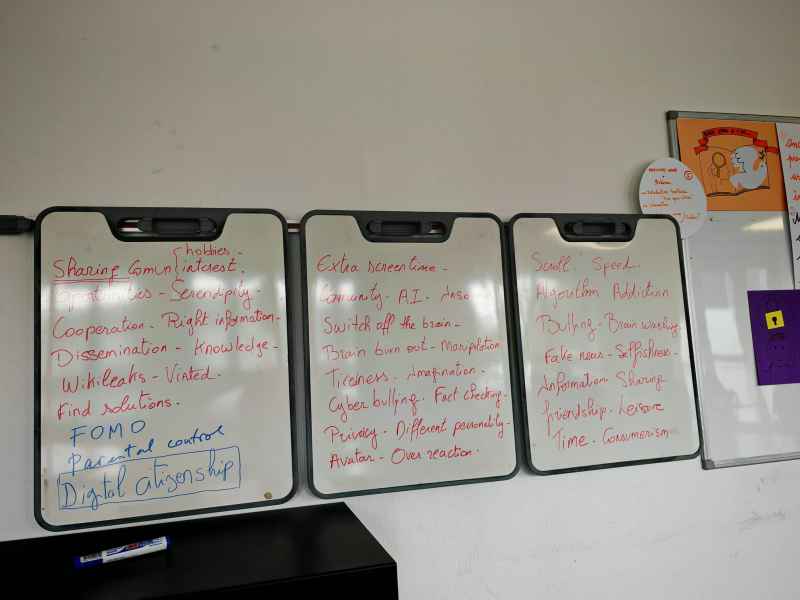 hobbies.
Sharing Comun { interest.
Serendipity.
Cooperation - Right information -
Dissemination - Knowledge -
Wikileaks - Viated.
Find solutions.
FOMO
Parental control
Digital citizenship
Extra screentime -
Comunity - A.I.
Switch off the brain -
Brain burn out - Manipolation
Tiredness - Imagination -
Cyber bullying - Fact checking
Privacy - Different personality -
Avatar - Over reaction.
Scroll. Speed.
Algorithm Addiction
Bulling - Brain washing
Fake news - Selfishness -
Information Sharing
friendship - Leisure
Time - Consumerism